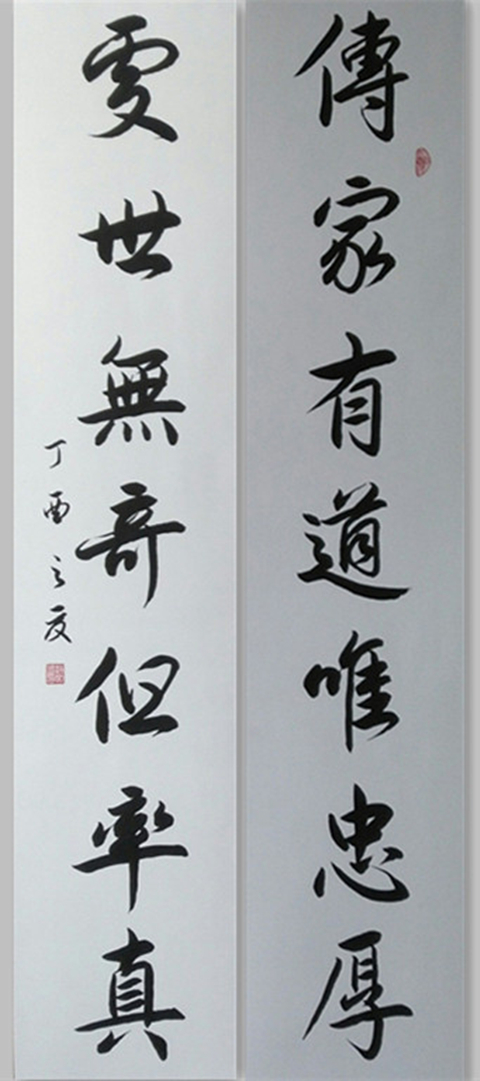 傳家有道唯忠厚
處世無奇但率真
丁酉之夏